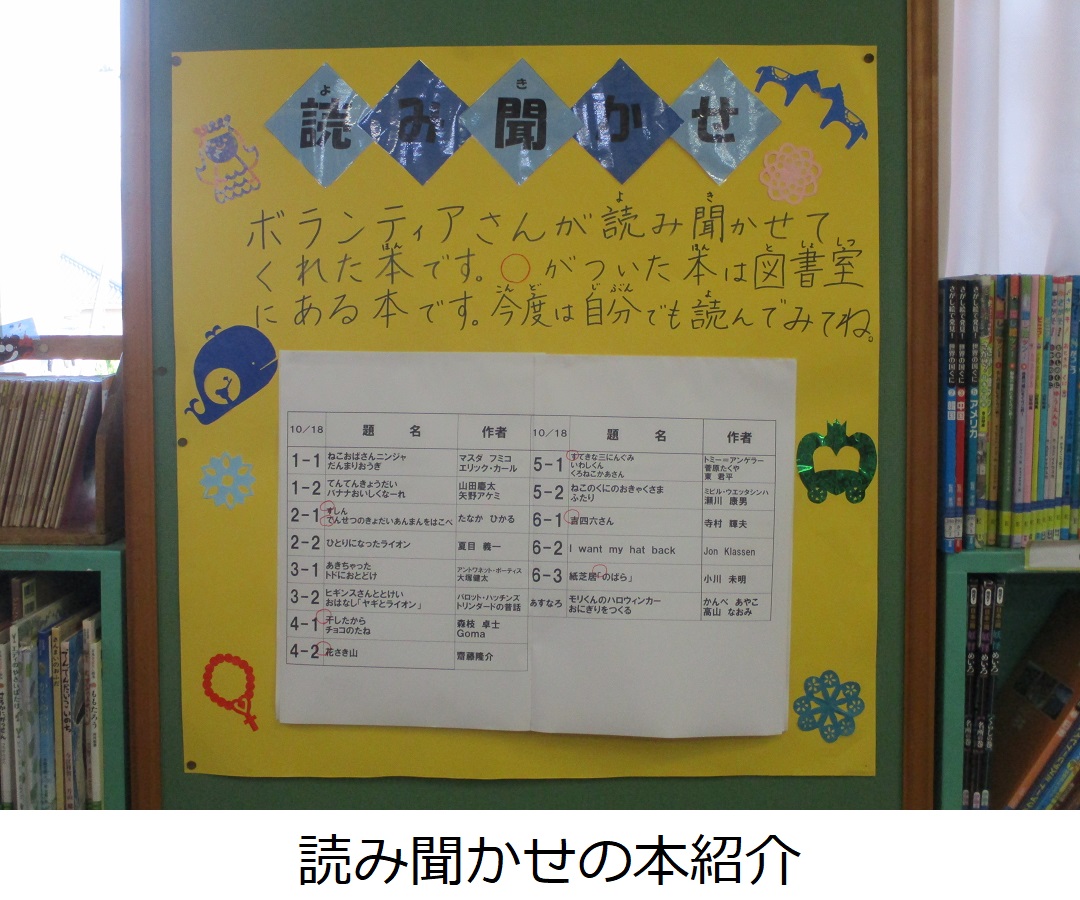 読み聞かせ
よ き
ボランティアさんが読み聞かせて
よ き
くれた本です。○がついた本は図書室
ほん ほん と しょ しつ
にある本です。今度は自分でも読んでみてね。
こん ど じ ぶん よ
10/18 題 名 作者
1-1 ねこおばさんニンジャ マスダ フミコ
だんまりおうぎ エリック・カール
1-2 てんてんきょうだい 山田慶太
バナナおいしくなーれ 矢野アケミ
2-1 すしん たなか ひかる
でんせつのきょだいあんまんをはこべ
2-2 ひとりになったライオン 夏目 義一
3-1 あきちゃった アントワネット・ポーティス
トドにおとどけ 大塚健太
3-2 ヒギンスさんととけい パロット・ハッチンズ
おはなし「ヤギとライオン」 トリンダードの昔話
4-1 干したから 森枝 卓士
チョコのたね Goma
4-2 花さき山 齋藤隆介
10/18 題 名 作者
5-1 すてきな三にんぐみ トミー=アンゲラー
いわしくん 菅原たくや
くろねこかあさん 東 君平
5-2 ねこのくにのおきゃくさま ミヒル・ウエッタシンハ
ふたり 瀬川 康男
6-1 吉四六さん 寺村 輝夫
6-2 I want my hat back Jon Klassen
6-3 紙芝居「のばら」 小川 未明
あすなろ モリくんのハロウィンカー かんべ あやこ
おにぎりをつくる 高山 なおみ
さがし絵で発見！ 世界の国ぐに
さがし絵で発見！ 世界の国ぐに 中国
さがし絵で発見！ 世界の国ぐに アメリカ
めいろ
めいろ
読み聞かせの本紹介